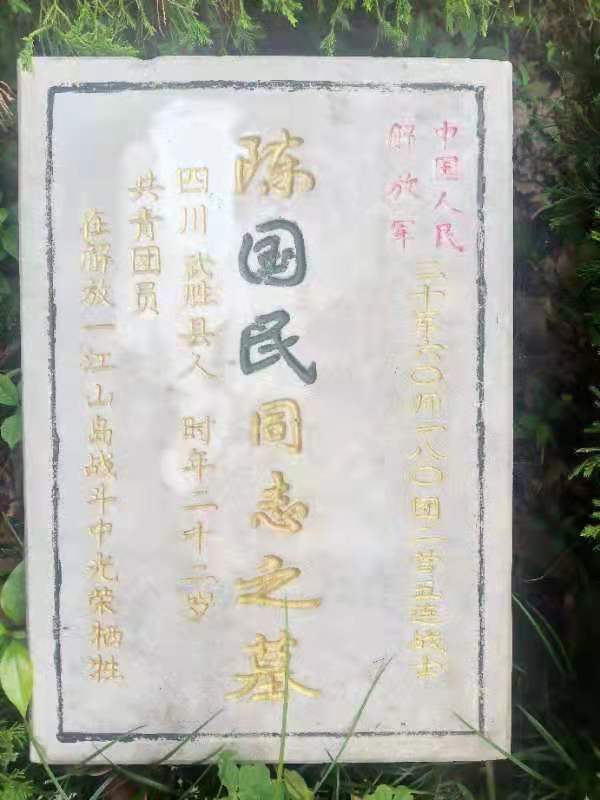 中国人民
解放军
二十军六〇师一八〇团二营五连战士
陈国民同志之墓
四川武胜县人 时年二十二岁
共青团员
在解放一江山岛战斗中光荣牺牲